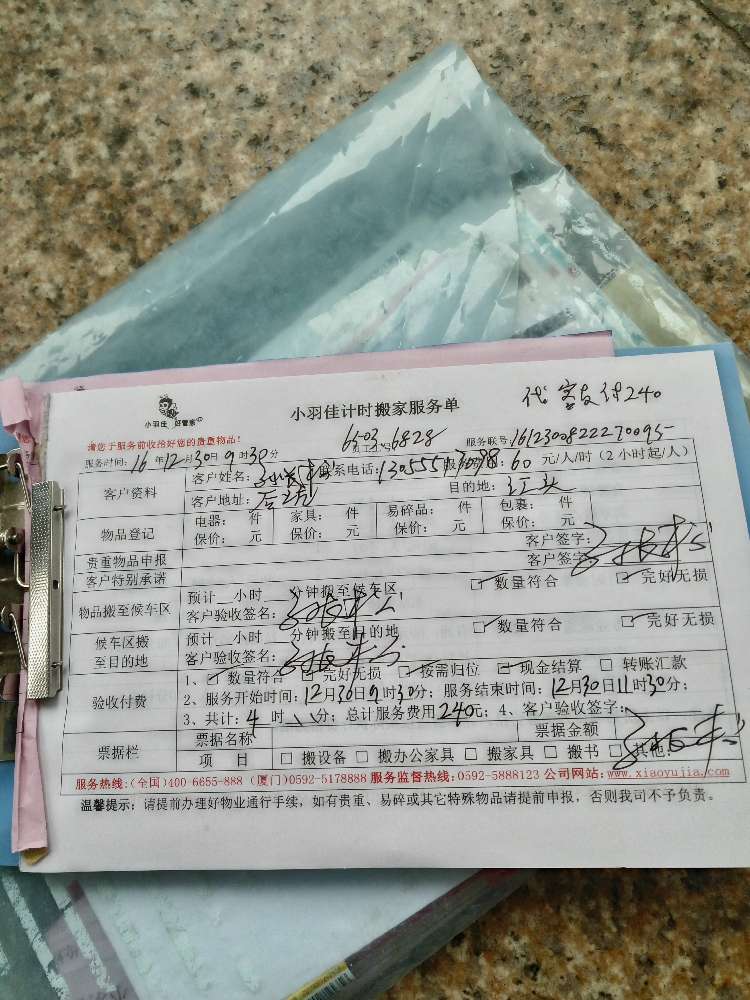 代客支付240
小羽佳计时搬家服务单
小羽佳 好管家
请您于服务前收拾好您的贵重物品!
6503、6828
服务联号:1612300822270095
服务时间:16年12月30日9时30分
客户资料
客户姓名: 联系电话: 60元/人/时(2小时起/人)
客户地址: 目的地:
物品登记
电器: 件 家具: 件 易碎品: 件 包裹: 件
保价: 元 保价: 元 保价: 元 保价: 元
贵重物品申报 客户签字:
客户特别承诺 客户签字
物品搬至候车区
预计__小时__分钟搬至候车区 数量符合 完好无损
客户验收签名:
候车区搬至目的地
预计__小时__分钟搬至目的地 数量符合 完好无损
客户验收签名:
验收付费
1、数量符合 完好无损 按需归位 现金结算 转账汇款
2、服务开始时间:12月30日9时30分;服务结束时间:12月30日11时30分;
3、共计:4时 分;总计服务费用240元;4、客户验收签字:
票据栏
票据名称 票据金额
项 目 搬设备 搬办公家具 搬家具 搬书 其他:
服务热线:(全国)400-6655-888 (厦门)0592-5178888 服务监督热线:0592-5888123 公司网站:www.xiaoyujia.com
温馨提示:请提前办理好物业通行手续,如有贵重、易碎或其它特殊物品请提前申报,否则我司不予负责。